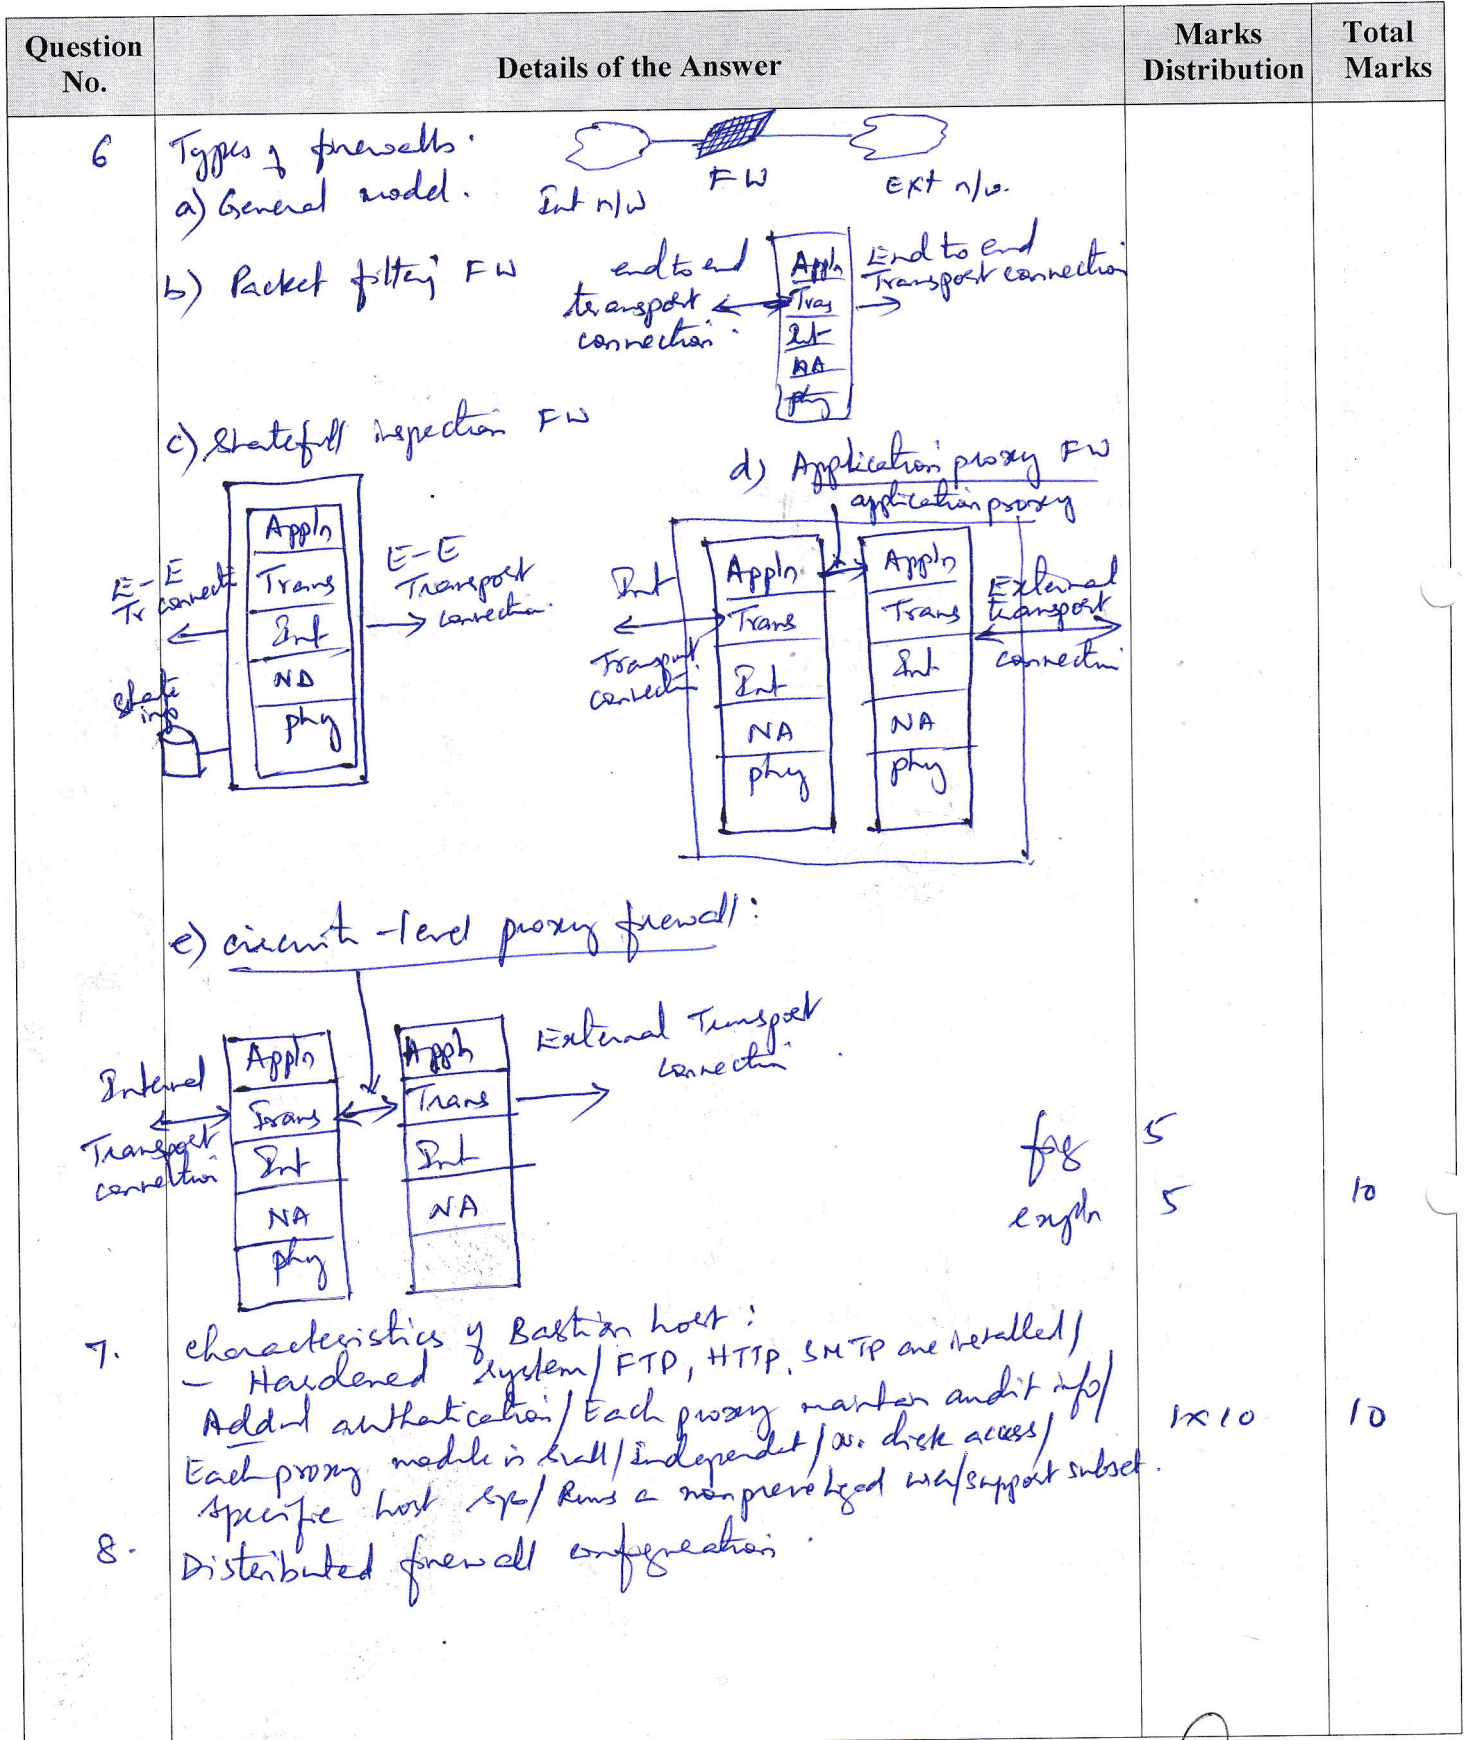 Question No.
Details of the Answer
Marks Distribution
Total Marks
6
Types of firewalls.
a) General model.
Int n/w
FW
Ext n/w.
b) Packet filterg FW
end to end
transport
connection.
Appln
Tras
Int
NA
phy
End to end
Transport connection
c) Statefull inspection FW
E-E
Tr connecti
State
info
Appln
Trans
Int
NA
phy
E-E
Transport
connection.
d) Application proxy FW
application proxy
Int
Transport
connecti
Appln
Trans
Int
NA
phy
Appln
Trans
Int
NA
phy
External
transport
connection
e) circuit-level proxy firewall:
Internal
Transport
connection
Appln
Trans
Int
NA
phy
Appln
Trans
Int
NA
External Transport
connection
fig 5
expln 5 10
7. Characteristics of Bastion host:
- Hardened system/ FTP, HTTP, SMTP are installed/
Addnl authentication/ Each proxy maintain audit info/
Each proxy module is small/ Independent/ no. disk access/
1x10 10
specific host sys/ Runs a nonpreveleged user/support subset.
8. Distributed firewall configuration.